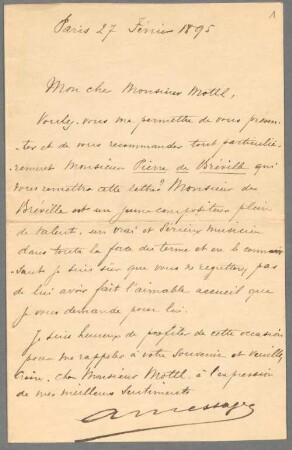 1
Paris 27 Février 1895
Mon cher Monsieur Mottl,
Voulez-vous me permettre de vous présen-
ter et de vous recommander tout particuliè-
rement Monsieur Pierre de Bréville qui
vous remettra cette lettre? Monsieur de
Bréville est un jeune compositeur plein
de talent, un vrai et sérieux musicien
dans toute la force du terme et en le connais-
-sant je suis sûr que vous ne regretterez pas
de lui avoir fait l'aimable accueil que
je vous demande pour lui.
Je suis heureux de profiter de cette occasion
pour me rappeler à votre souvenir et veuillez
croire, cher Monsieur Mottl, à l'expression
de mes meilleurs sentiments
A Messager